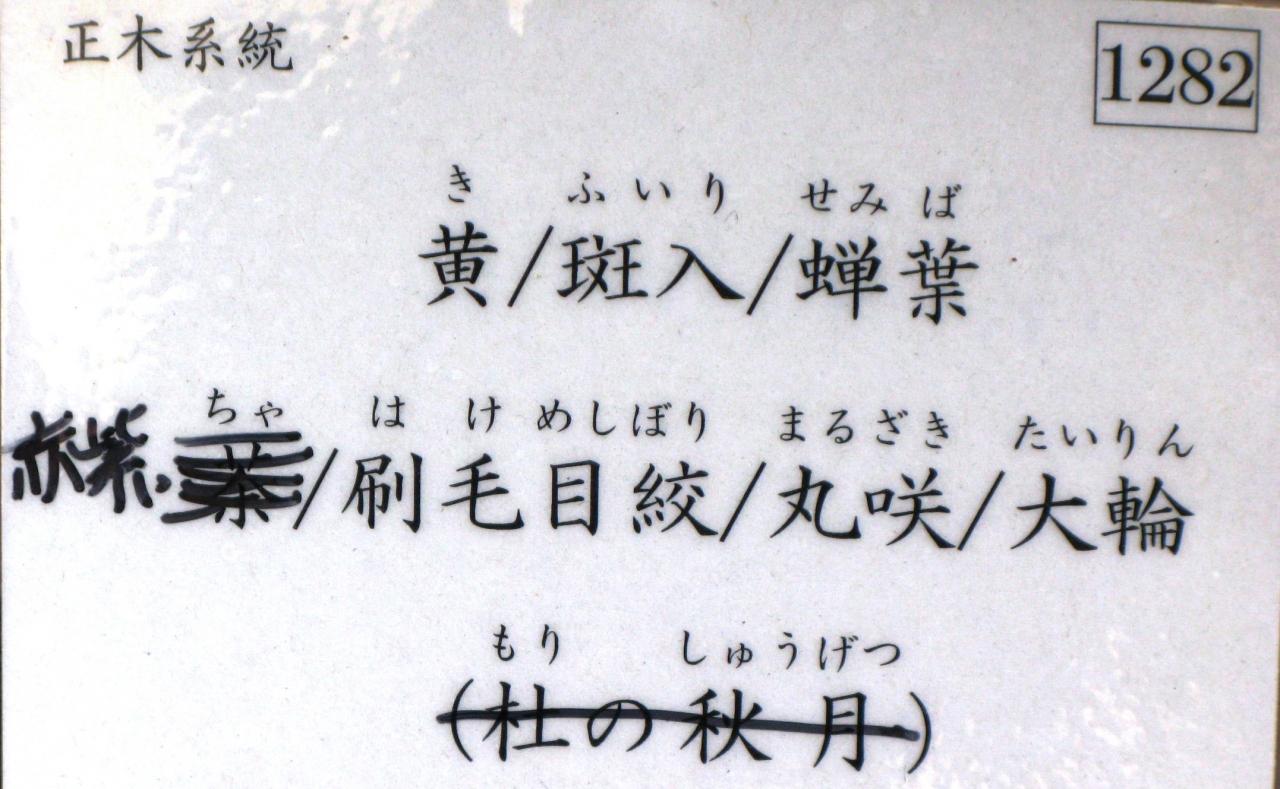 正木系統
1282
き ふいり せみば
黄/斑入/蝉葉
ちゃ はけめしぼり まるざき たいりん
赤紫.茶/刷毛目絞/丸咲/大輪
もり しゅうげつ
(杜の秋月)